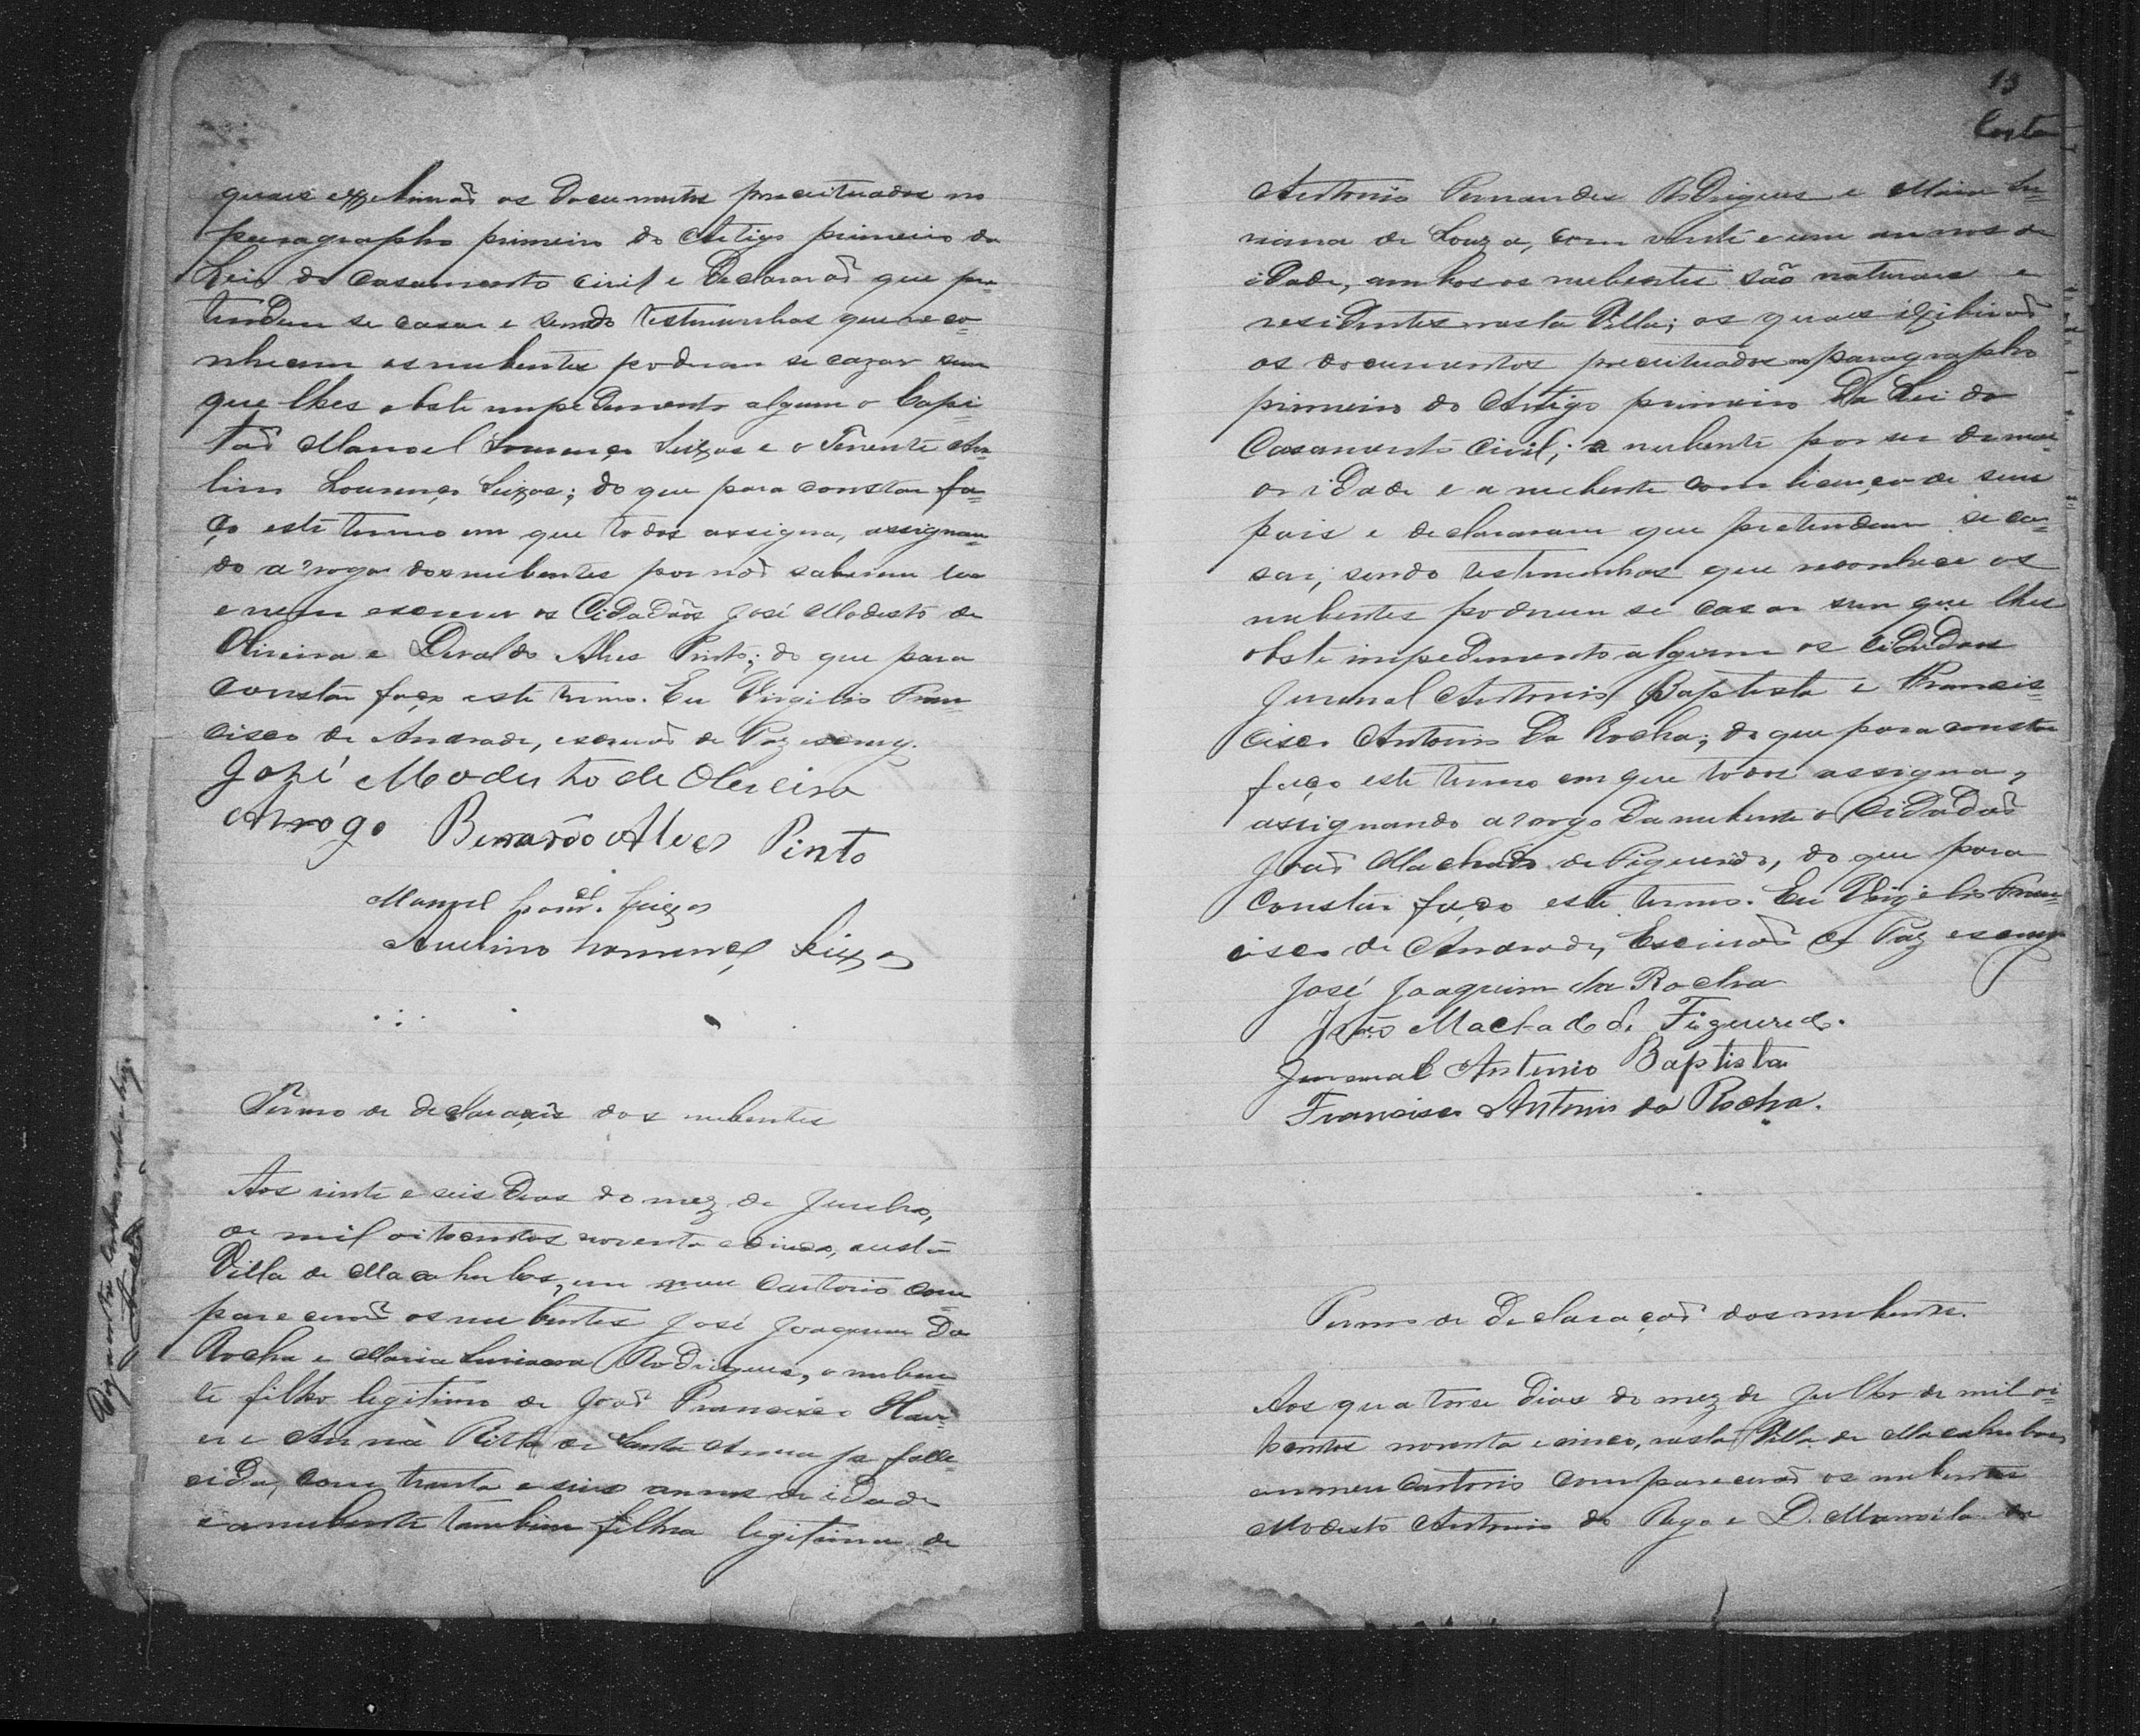 quaes exhibirão os Documentos preceituados no
paragrapho primeiro do Artigo primeiro da
Lei do casamento civil e Declararão que pre=
tendem se casar e sendo testimunhas que reco=
nhecem os nubentes poderem se cazar sem
que lhes obste impedimento algum o Capi
tão Manoel Lourenço Seixas e o Tenente Ave
lino Lourenço Seixas; do que para constar fa=
ço este termo em que todos assigna, assignan=
do a rogo dos nubentes por não saberem ler
e nem escrever os Cidadãos José Modesto de
Oliveira e Alves Pinto; do que para
constar faço este termo. Eu Virgilio Fran=
cisco de Andrade, escrivão de Paz escrevy.
José Modesto de Oliveira
Arrogo Alves Pinto
Manoel Seixas
Avelino Lourenço Seixas
Termo de declaração dos nubentes
Aos vinte e seis Dias do mez de Junho,
de mil oitocentos noventa e cinco, nesta
Villa de Macahubas, em meu Cartorio com=
parecerão os nubentes José Joaquim Da
Rocha e Maria Luriana Rodrigues, o nuben=
te filho legitimo de João Francisco
e Anna Rita de Santa Anna ja falle=
cida, com trinta e seis annos de idade
e a nubente tambem filha legitima de
13
Costa
Antonio Fernandes Rodrigues e Maria Lu=
riana de Souza, com vinte e um annos de
idade, ambos os nubentes são naturaes e
residentes nesta Villa; os quaes exibirão
os documentos preceituados no paragrapho
primeiro do Artigo primeiro Da Lei do
Casamento Civil; o nubente por ser de mai=
or idade e a nubente com licença de seus
pais e declararam que pretendem se ca=
sar, sendo testimunhas que reconhece os
nubentes poderem se casar sem que lhes
obste impedimento algum os cidadãos
Juvenal Antonio Baptista e Francis=
cisco Antonio Da Rocha; do que para constar
faço este termo em que todos assigna,
assignando a rogo Da nubente o Cidadão
João Machado de Figueredo, do que para
constar faço este termo. Eu Virgilio Fran=
cisco de Andrade, Escrivão de Paz escrevy
José Joaquim da Rocha
João Machado de Figueredo.
Juvenal Antonio Baptista
Francisco Antonio da Rocha.
Termo de Declaração dos nubentes.
Aos quatorse Dias do mez de Julho de mil oi=
tocentos noventa e cinco, nesta Villa de Macahubas
em meu Cartorio comparecerão os nubentes
Modesto Antonio do Rego e D. da